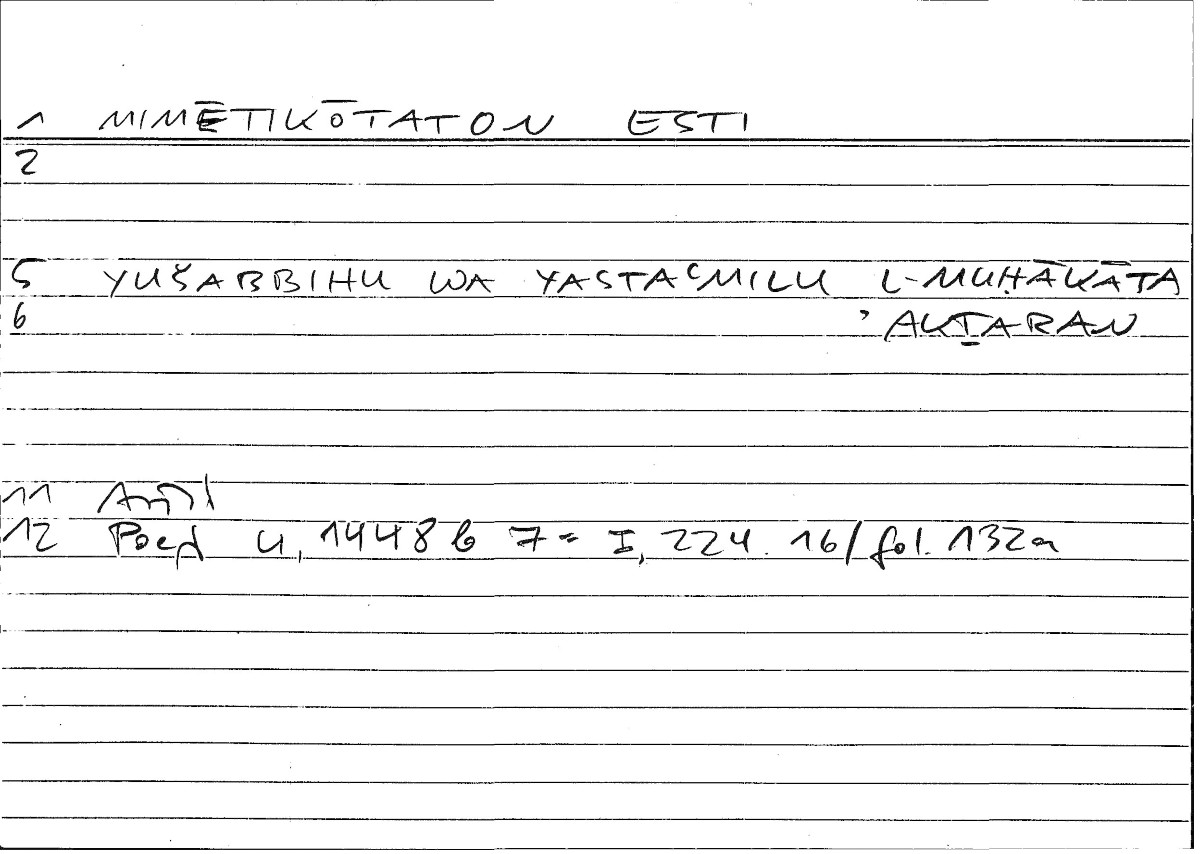 1 MIMĒTIKŌTATON ESTI
2
5 YUŠABBIHU WA YASTAʿMILU L-MUḤĀKĀTA
6 ʾAKṮARAN
11 Arist
12 Poet 4, 1448 b 7 = I, 224. 16 / fol. 132a